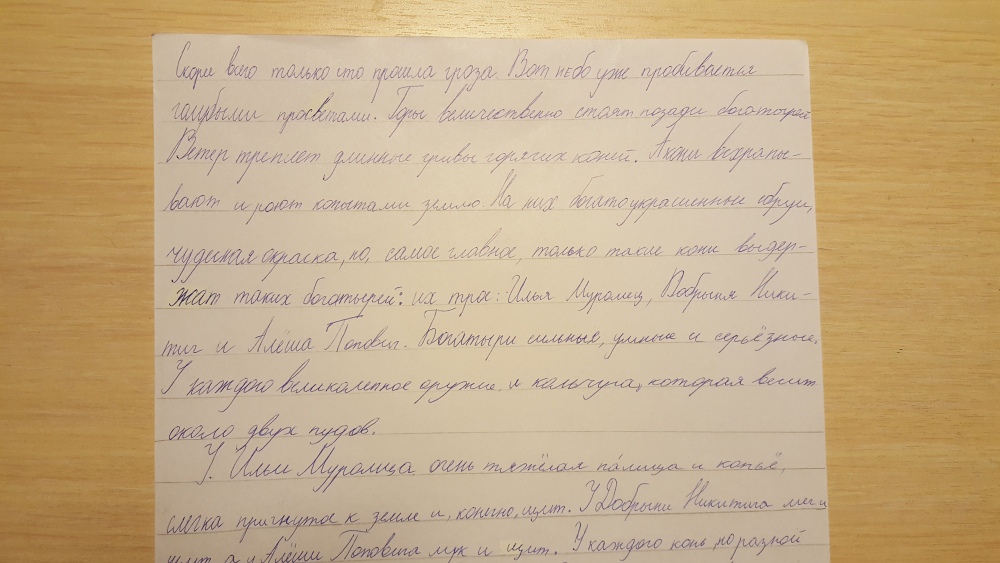 Скори всего только что прошла гроза. Вот небо уже пробивается
голубыми просветами. Горы величественно стоят позади богатырей
Ветер треплет длинные гривы горячих коней. А кони всхрапы-
вают и роют копытами землю На них богато украшенные сбруи,
чудесная окраска, но, самое главное, только такие кони выдер-
жат таких богатырей: их трое: Илья Муромец, Добрыня Ники-
тич и Алёша Попович. Богатыри сильные, умные и серьёзные.
У каждого великолепное оружие и кольчуга, которая весит
около двух пудов.
У Ильи Муромца очень тяжёлая палица и копьё,
слегка пригнутое к земле и, конечно, щит. У Добрыни Никитича меч и
щит, а у Алёши Поповича лук и щит. У каждого конь по разной